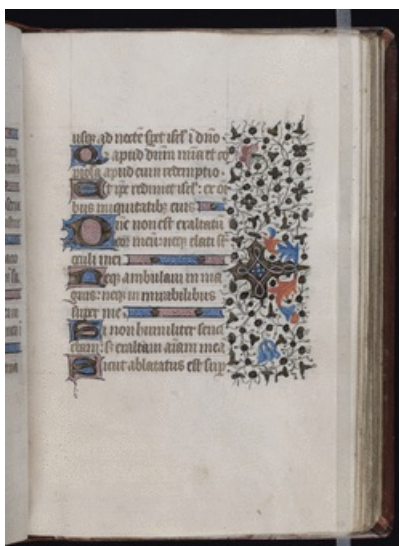 usq; ad noctē spet isrl' ī dño·
Q̃a apud dñm mīa et co
piosa apud eum redemptio·
Et ipe redimet isrl': ex oī
bus iniquitatib; eius
Dñe non est exaltatū
cor meū: neq; elati sūt
oculi mei
Neq; ambulaui in ma
gnis: neq; in mirabilibus
super me
Si non humiliter senti
ebam: s; exaltaui aīam meā
Sicut ablactatus est sup